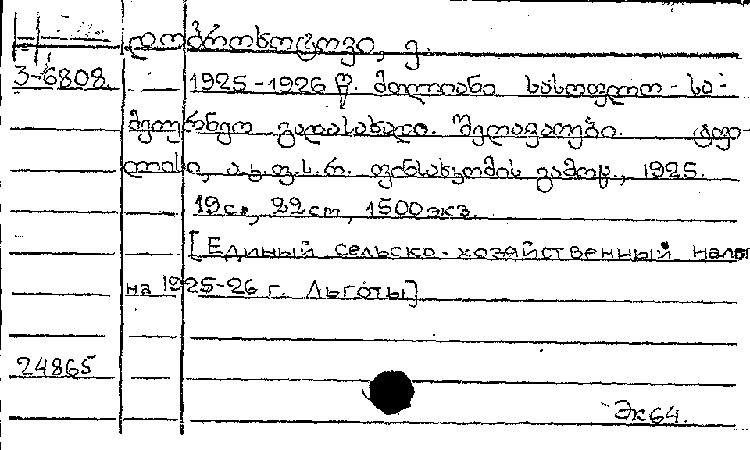 დობროხოტოვი, ე.
3-6808. 1925-1926 წ. მთლიანი სასოფლო-სა-
მეურნეო გადასახადი. შეღავათები. ტფი-
ლისი, ა.კ.ფ.ს.რ. ფინსახკომის გამოც., 1925.
19 с., 22 см, 1500 экз.
[Единый сельско-хозяйственный налог
на 1925-26 г. Льготы]
24865
Эк64.